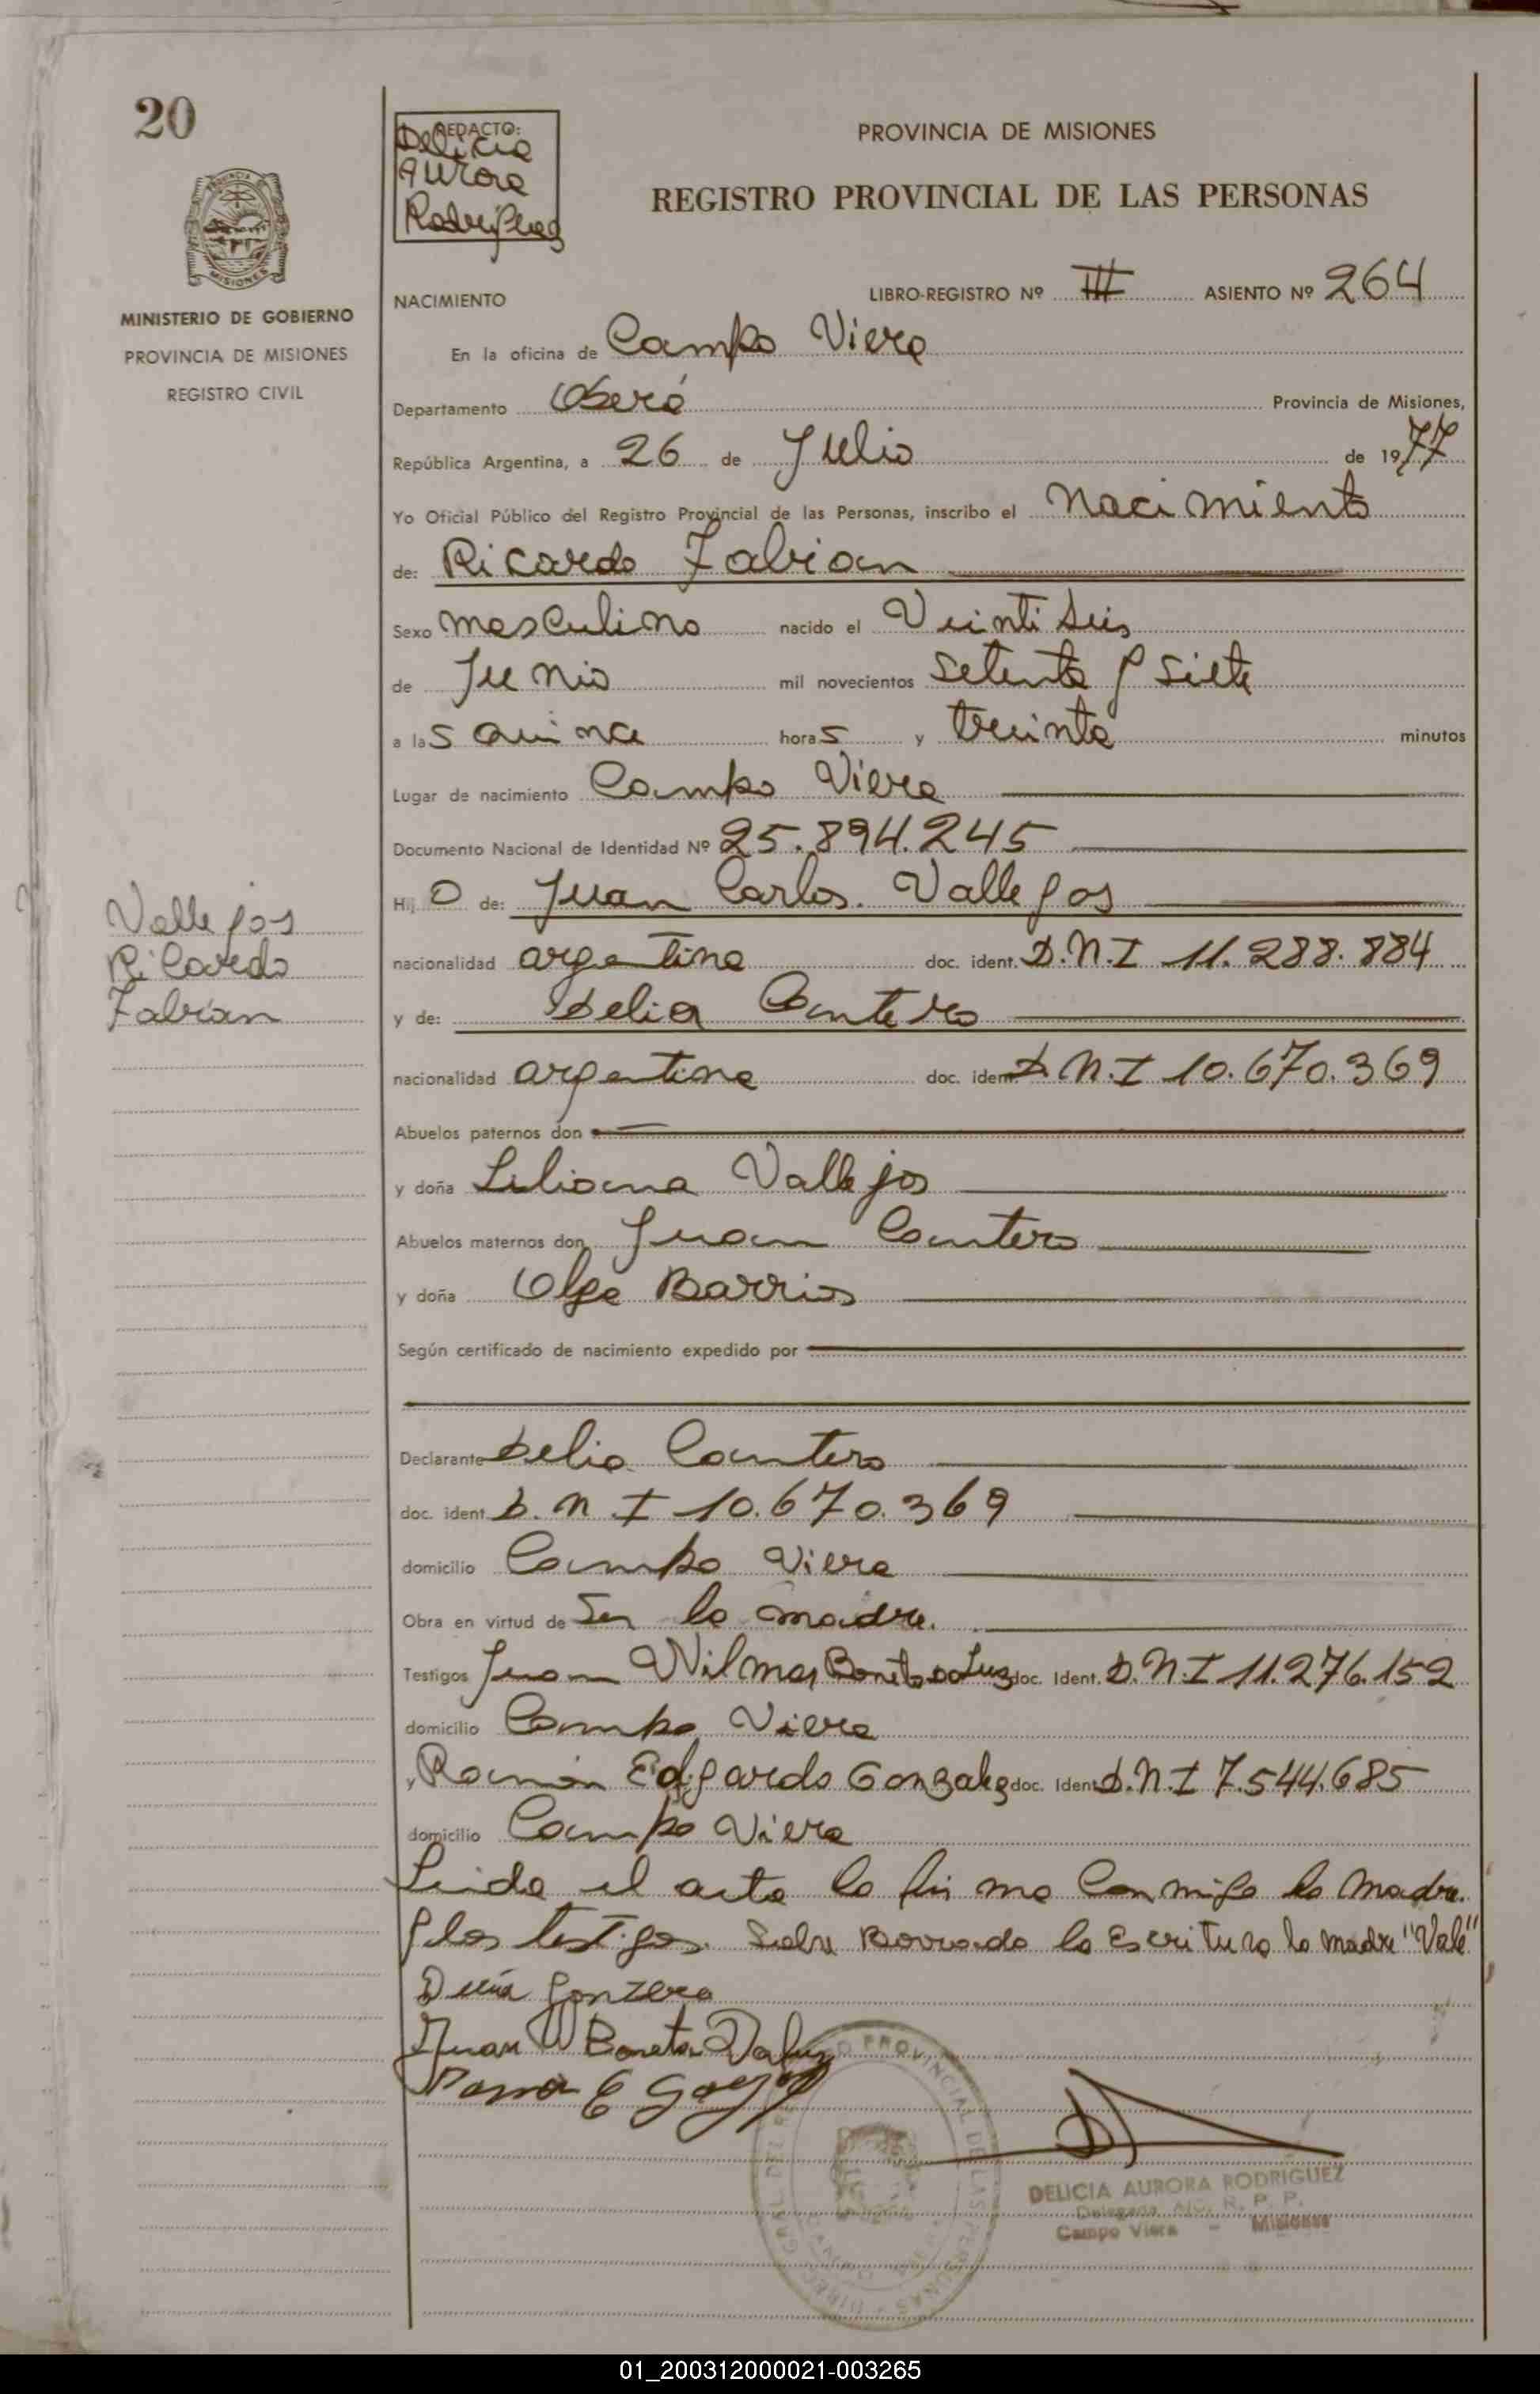 20
REDACTO:
Delicia
Aurora
Rodriguez
PROVINCIA DE MISIONES
REGISTRO PROVINCIAL DE LAS PERSONAS
MISIONES
MINISTERIO DE GOBIERNO
PROVINCIA DE MISIONES
REGISTRO CIVIL
NACIMIENTO LIBRO-REGISTRO Nº III ASIENTO Nº 264
En la oficina de Campo Viera
Departamento Oberá Provincia de Misiones,
República Argentina, a 26 de Julio de 1977
Yo Oficial Público del Registro Provincial de las Personas, inscribo el Nacimiento
de: Ricardo Fabian
Sexo masculino nacido el Veintiseis
de Junio mil novecientos setenta y siete
a las quince horas y treinta minutos
Lugar de nacimiento Campo Viera
Documento Nacional de Identidad Nº 25.894.245
Hijo de: Juan Carlos Vallejos
nacionalidad argentina doc. ident. D.N.I 11.288.884
Vallejos
Ricardo
Fabián
y de: Delia Cantero
nacionalidad argentina doc. ident. D.N.I 10.670.369
Abuelos paternos don
y doña Liliana Vallejos
Abuelos maternos don Juan Cantero
y doña Olga Barrios
Según certificado de nacimiento expedido por
Declarante Delia Cantero
doc. ident. D.N.I 10.670.369
domicilio Campo Viera
Obra en virtud de Ser la madre.
Testigos Juan Wilmar Boneto Da Luz doc. Ident. D.N.I 11.276.152
domicilio Campo Viera
y Ramón Edgardo Gonzalez doc. Ident. D.N.I 7.544.685
domicilio Campo Viera
Leida el acta la firma conmigo la madre
y los testigos. Sobre Borrado la Escritura la madre "Vale"
Juan W Boneto Daluz
DELICIA AURORA RODRIGUEZ
Delegada A/C. R. P. P.
Campo Viera - Misiones
01_200312000021-003265